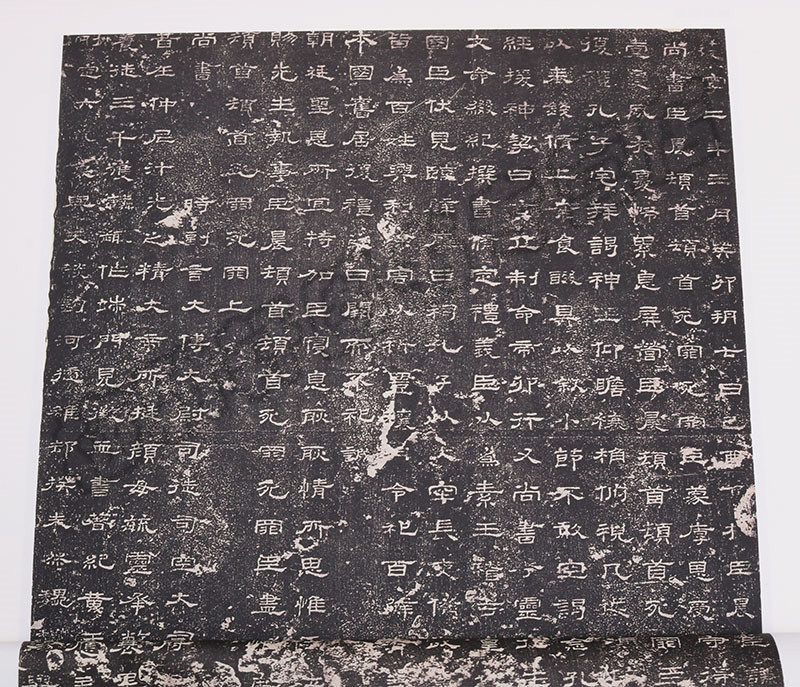 寧二年三月癸卯朔七日己酉相臣晨長
尚書臣晨頓首頓首死罪死罪臣蒙厚恩受符守
壹變夙夜憂怖累息屏營臣晨頓首頓首死罪
復禮孔子宅拜謁神坐仰瞻榱桷俯視几筵
以奉錢脩上案食醊具以敘小節不敢空謁
經援神挈曰玄丘制命帝卯行又尚書考靈
文命綴紀撰書脩定禮義臣以爲素王稽古
國臣伏見臨璧雍日祠孔子以大牢長吏備
皆爲百姓興利除害以祈豐穰月令祀百辟
本國舊居復禮之日闕而不祀誠
朝廷聖恩所宜特加臣寑息耿耿情所思惟
賜先生執事臣晨頓首頓首死罪死罪臣盡
頓首頓首死罪死罪上
尚書 時副言大傅大尉司徒司空大司
昔在仲尼汁光之精大帝所挺顏母毓靈承敝
養徒三千獲麟趣作端門見徵血書著紀黃玉
定六藝象與天談鉤河擿雒卻揆未然魏